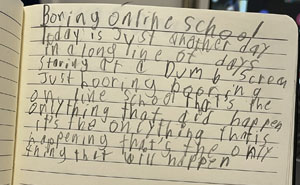 Boring online school
today is just another day
in a long line of days
staring at a Dumb screen
Just booring booring
online school that's the
onlything that did happen
it's the onlything thats
happening that's the only
thing that will happen